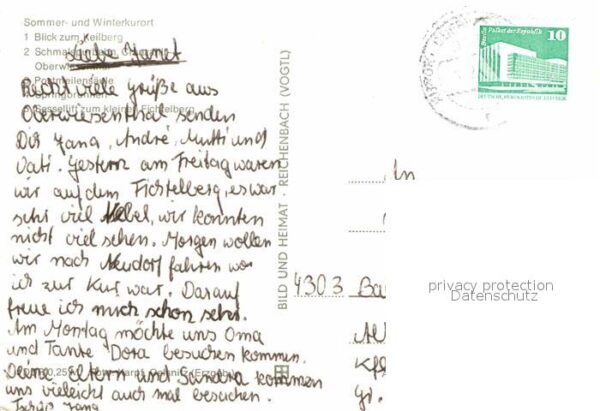 Sommer- und Winterkurort
1 Blick zum Keilberg
2 Schmalspurbahn
Oberwiesenthal
Postmeilensäule
Springbrunnen
Sessellift zum kleinen Fichtelberg
Liebe Janet
Recht viele Grüße aus
Oberwiesenthal senden
Dir Jana, André, Mutti und
Vati. Gestern am Freitag waren
wir auf dem Fichtelberg, es war
sehr viel Nebel, wir konnten
nicht viel sehen. Morgen wollen
wir nach Neudorf fahren wo
ich zur Kur war. Darauf
freue ich mich schon sehr.
Am Montag möchte uns Oma
und Tante Dora besuchen kommen.
Deine Eltern und Sandra kommen
uns vieleicht auch mal besuchen.
Tschüß Jana
BILD UND HEIMAT · REICHENBACH (VOGTL)
Berlin Palast der Republik
10
DEUTSCHE DEMOKRATISCHE REPUBLIK
An
4303 Ba
privacy protection
Datenschutz